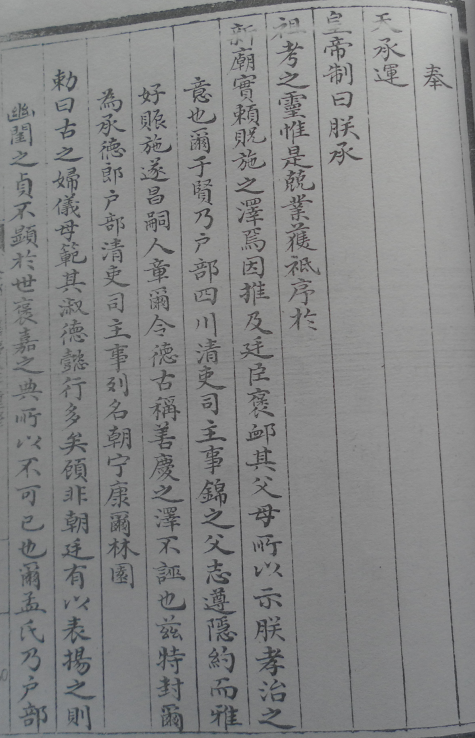 奉
天承運
皇帝制曰朕承
祖考之靈惟是兢業獲祗序於
新廟實賴貺施之澤焉因推及廷臣褒卹其父母所以示朕孝治之
意也爾于賢乃戶部四川清吏司主事錦之父志遵隱約而雅
好賑施遂昌嗣人章爾令德古稱善慶之澤不誣也茲特封爾
為承德郎戶部清吏司主事列名朝宁康爾林園
勅曰古之婦儀母範其淑德懿行多矣顧非朝廷有以表揚之則
幽閨之貞不顯於世褒嘉之典所以不可已也爾孟氏乃戶部